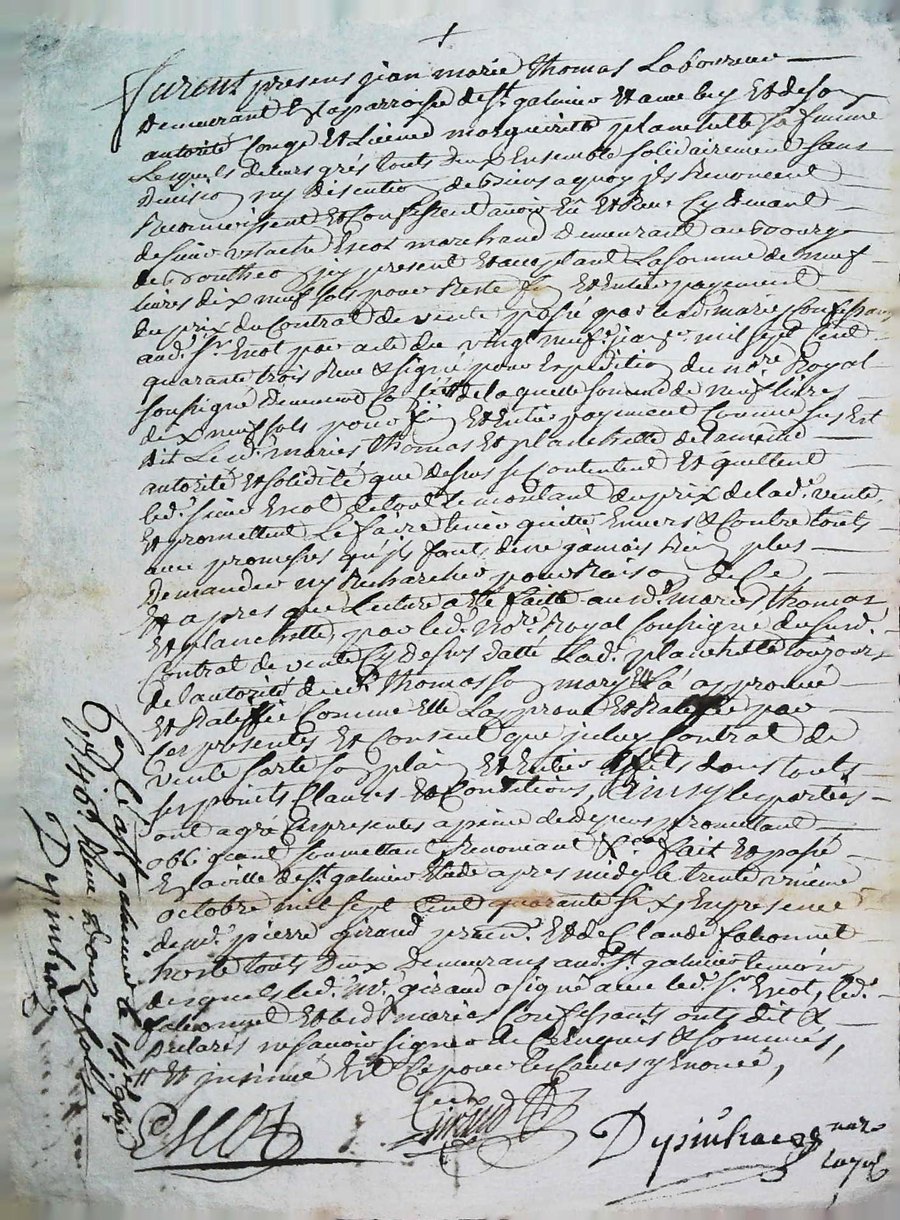 furent presens jean marie thomas Laboureur
demeurant En laparroisse de st galmier Et avec luy Et de son
autorité Congé Et Licence marguerite planchette sa femme
Lesquels de leurs grés touts deux Ensemble solidairement sans
Division ny discution de biens a quoy ils Renoncent
Recornoissent Et Confessent avoir Eu Et Receu Cy devant
de sieur Escot marchand demeurant au bourg
de present Et acceptant La somme de neuf
livres dix neuf sols pour Reste fin Et Entier payement
du prix du Contrat de vente passé par lesd. mariés Confessants
aud. sr. Escot par acte du vingt neuf. janver mil sept Cent
quarante trois Receu & signé pour Expedition du nore. Royal
soussigné Deument de laquelle somme de neuf livres
dix neuf sols pour fin Et Entier payement Comme sus Est
dit Lesd. mariés thomas Et planchette de la meme
autorité Et solidité que dessus se Contentent Et quittent
led. sieur Escot de tout Le montant du prix de lad. vente,
Et promettent Le faire tenir quitte Envers & Contre touts
avec promesses qu'ils fonts de ne jamais Rien plus
Demander ny Rechercher pour Raison de Ce
Et apres que lecture a Eté faitte auxd. mariés thomas
Et planchette par led. Nore. Royal soussigné du susd.
Contrat de vente Cy dessus datté Lad. planchette toujours
de l'autorité dud. thomas son mary Ella approuvé
Et Rateffié Comme Elle Laprouve Et Rateffie par
Ces presentes Et Consent que jceluy Contrat de
vente sorte son plain Et Entier Effets dans touts
ses points Clauses Et Conditions, Ainsy les parties
ont agréé Cespresentes a peine de depens promettant
obligeant soumettant Renonceant &ca fait Et passé
En la ville de st. galmier Etude apres midy le trente unieme
octobre mil sept Cent quarante six, En presence
de me. pierre giraud Et de Claude fahonnet
hoste touts deux Demeurans aud. st. galmier temoins
desquels led. Me. giraud a signé avec led. sr. Escot, led.
fahonnet Et lesd. mariés Confessants onts dit &
declarés ne savoir signer de Ce Enquis & Sommés,
// Et jnsinué Est Ce pour les Causes y Enoncé,
Escot
Giraud
Depinhac nore
royal
Con.lé a st galmier le 14e. 9bre
1746. Receu douze sols
Depinhac